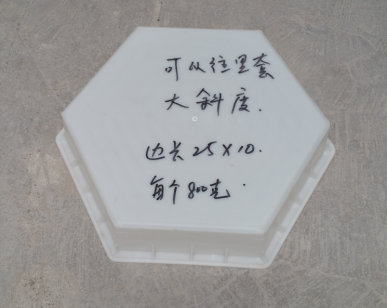 可从往里套
大斜度.
边长25×10.
每个800克.